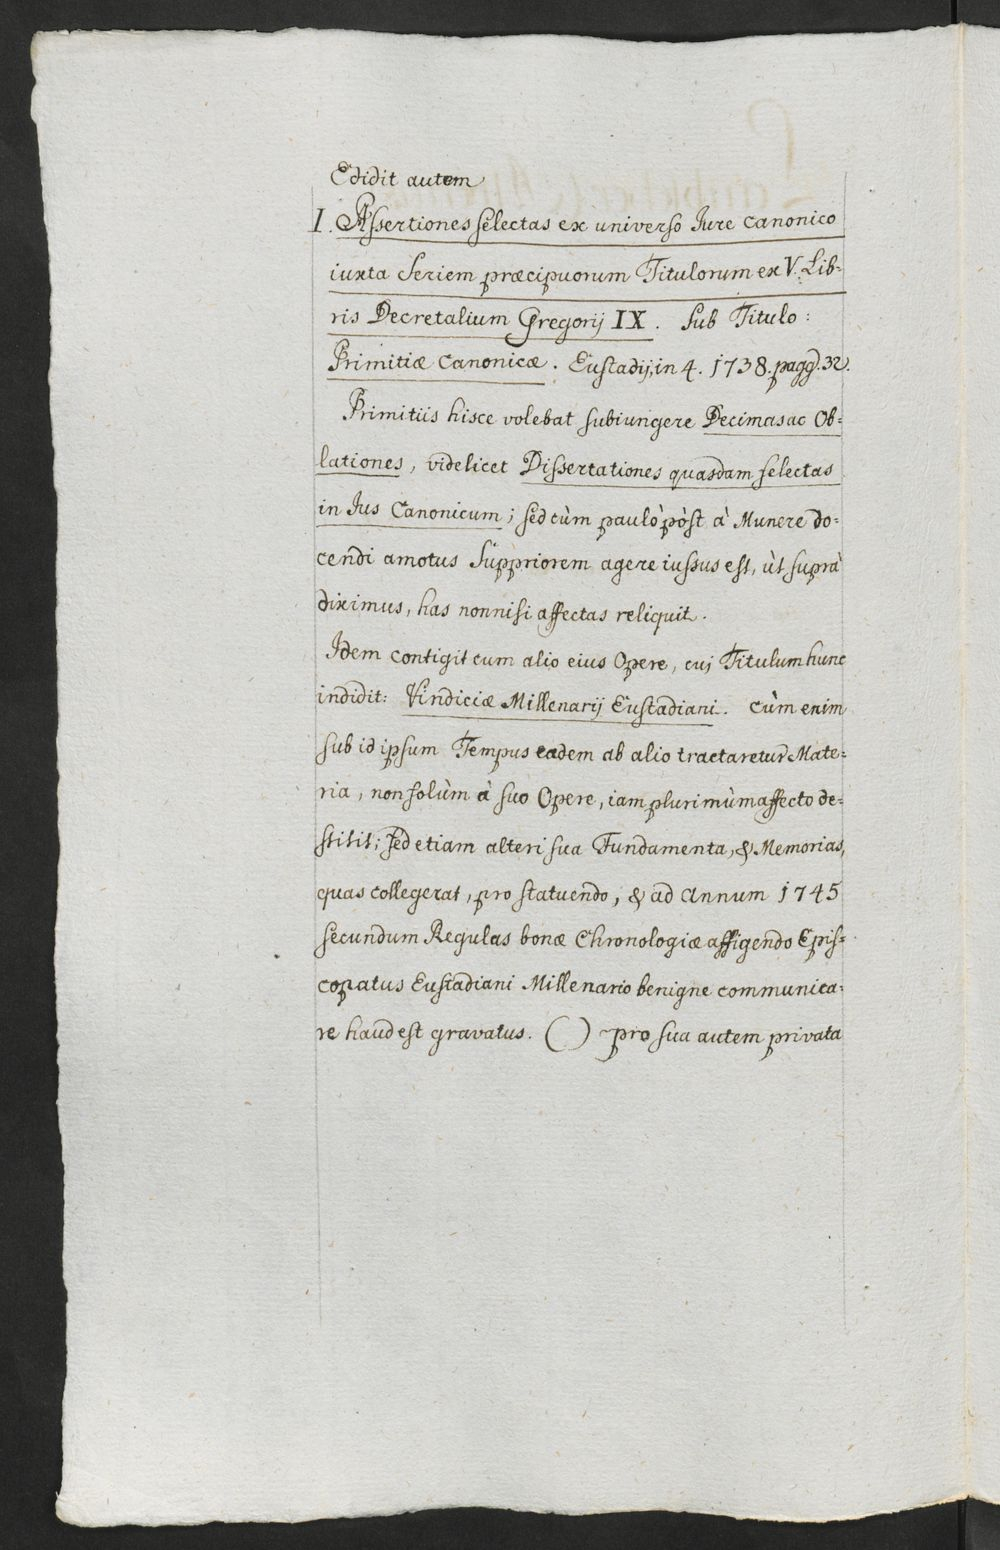 Edidit autem
I. Assertiones selectas ex universo Iure canonico
iuxta Seriem præcipuorum Titulorum ex V. Lib=
ris Decretalium Gregorij IX. Sub Titulo:
Primitiæ canonicæ. Eustadij, in 4. 1738. pagg. 32.
Primitiis hisce volebat subiungere Decimas ac Ob=
lationes, videlicet Dissertationes quasdam selectas
in Ius Canonicum; sed cùm paulò pòst à Munere do=
cendi amotus Suppriorem agere iussus est, ùt suprà
diximus, has nonnisi affectas reliquit.
Idem contigit cum alio eius Opere, cuj Titulum hunc
indidit: Vindiciæ Millenarij Eustadiani. cùm enim
sub id ipsum Tempus eadem ab alio tractaretur Mate=
ria, non solùm à suo Opere, iam plurimùm affecto de=
stitit; sed etiam alteri sua Fundamenta, & Memorias,
quas collegerat, pro statuendo, & ad Annum 1745
secundum Regulas bonæ Chronologiæ affigendo Epis=
copatus Eustadiani Millenario benigne communica=
re haud est gravatus. ( ) pro sua autem privata